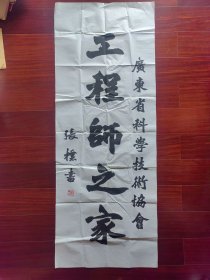 廣東省科學技術協會
工程師之家
張樸書